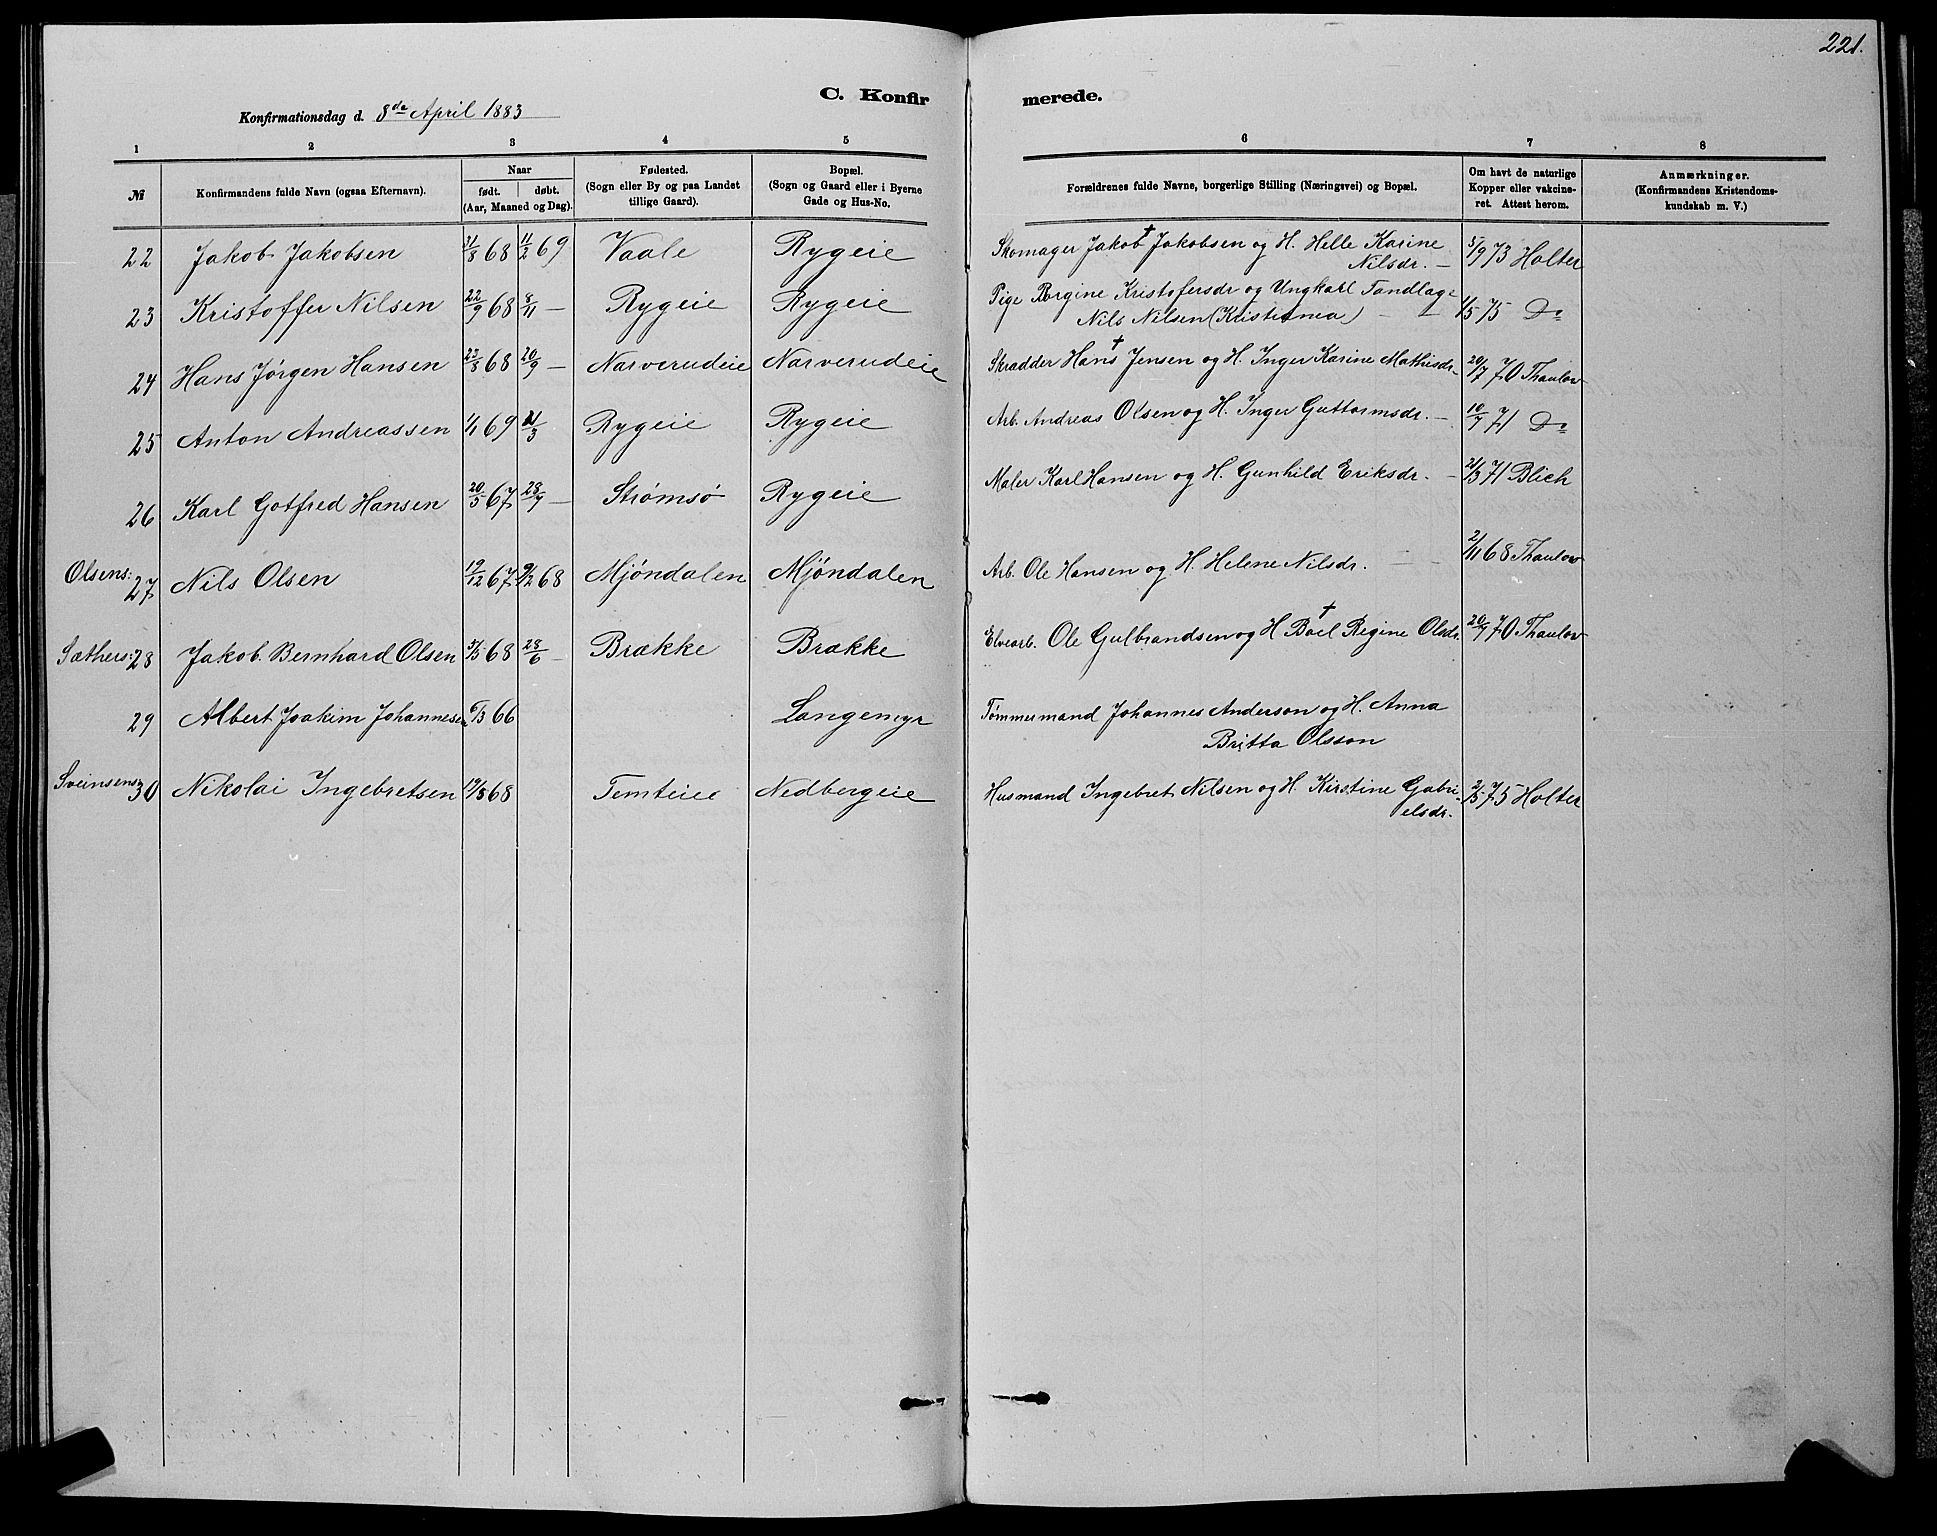 221.
C. Konfirmerede.
Konfirmationsdag d. 8de April 1883
1 2 3 4 5 6 7 8
№ Konfirmandens fulde Navn (ogsaa Efternavn). Naar født. døbt. (Aar, Maaned og Dag). Fødested. (Sogn eller By og paa Landet tillige Gaard). Bopæl. (Sogn og Gaard eller i Byerne Gade og Hus-No. Forældrenes fulde Navne, borgerlige Stilling (Næringsvei) og Bopæl. Om havt de naturlige Kopper eller vakcineret. Attest herom. Anmærkninger. (Konfirmandens Kristendomskundskab m. V.)
22 Jakob Jakobsen 31/8 68 11/2 69 Vaale Rygeie Skomager Jakob † Jakobsen og H. Helle Karine 5/9 73 Holter
Nilsdr. —
23 Kristoffer Nilsen 22/9 68 8/11 — Rygeie Rygeie Pige Kristofersdr og Ungkarl Tandlæge 1/5 75 Do
Nils Nilsen (Kristiania) —
24 Hans Jørgen Hansen 23/8 68 20/9 — Narverudeie Narverudeie Skrædder Hans † Jensen og H. Inger Karine Mathisdr — 20/7 70 Thaulow
25 Anton Andreassen 1/1 69 21/3 Rygeie Rygeie Arb. Andreas Olsen og H. Inger Guttormsdr. — 10/7 71 Do
26 Karl Gotfred Hansen 20/5 67 28/7 — Strømsø Rygeie Maler Karl Hansen og H. Gunhild Eriksdr. — 21/3 71 Blich
Olsens: 27 Nils Olsen 19/12 67 9/2 68 Mjøndalen Mjøndalen Arb. Ole Hansen og H. Helene Nilsdr. — 2/11 68 Thaulow
Sæthers: 28 Jakob Bernhard Olsen 5/5 68 28/6 — Brække Brække Elvearb. Ole Gulbrandsen og H † Boel Regine Olsdr. 20/7 70 Thaulow
29 Albert Joakim Johannesen 6/3 66 Langemyr Tømmermand Johannes Anderson og H. Anna
Britta Olsson
Sveinsens 30 Nikolai Ingebretsen 19/8 68 Temteeie Nedbergeie Husmand Ingebret Nilsen og H. Kirstine Gabri- 2/5 75 Holter
elsdr.